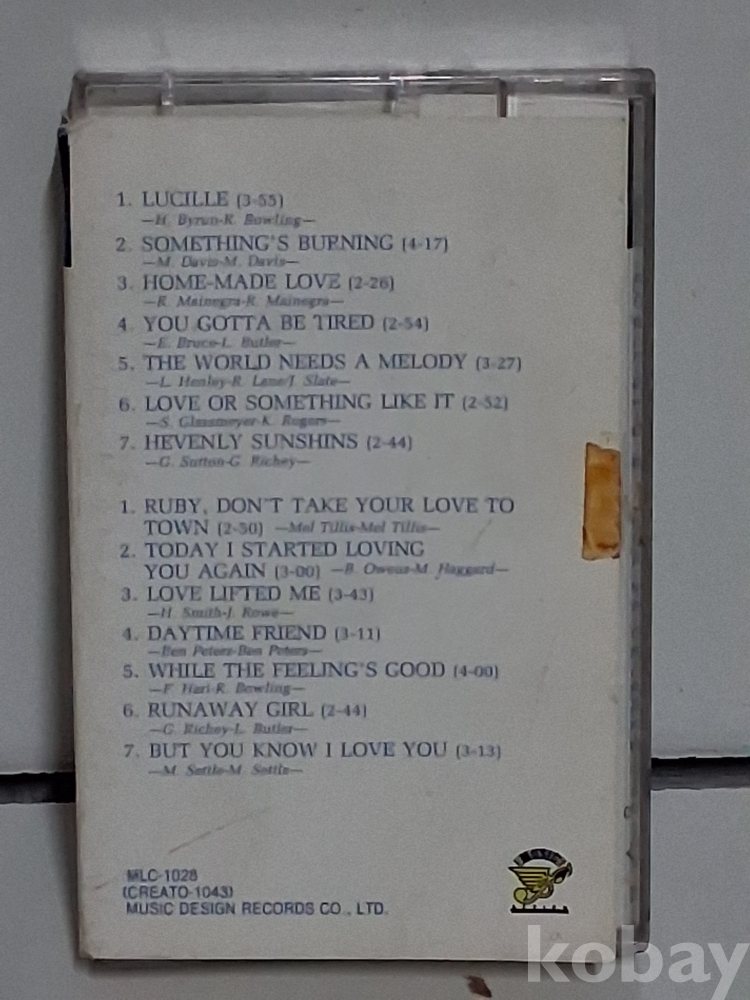 1. LUCILLE (3-55)
—H. Byrun-R. Bowling—
2. SOMETHING'S BURNING (4-17)
—M. Davis-M. Davis—
3. HOME-MADE LOVE (2-26)
—R. Mainegra-R. Mainegra—
4. YOU GOTTA BE TIRED (2-54)
—E. Bruce-L. Butler—
5. THE WORLD NEEDS A MELODY (3-27)
—L. Henley-R. Lane/J. Slate—
6. LOVE OR SOMETHING LIKE IT (2-52)
—S. Glassmeyer-K. Rogers—
7. HEVENLY SUNSHINS (2-44)
—G. Sutton-G. Richey—
1. RUBY, DON'T TAKE YOUR LOVE TO
TOWN (2-50) —Mel Tillis-Mel Tillis—
2. TODAY I STARTED LOVING
YOU AGAIN (3-00) —B. Owens-M. Haggard—
3. LOVE LIFTED ME (3-43)
—H. Smith-J. Rowe—
4. DAYTIME FRIEND (3-11)
—Ben Peters-Ben Peters—
5. WHILE THE FEELING'S GOOD (4-00)
—F. Hart-R. Bowling—
6. RUNAWAY GIRL (2-44)
—G. Richey-L. Butler—
7. BUT YOU KNOW I LOVE YOU (3-13)
—M. Settle-M. Settle—
MLC-1028
(CREATO-1043)
MUSIC DESIGN RECORDS CO., LTD.
kobay